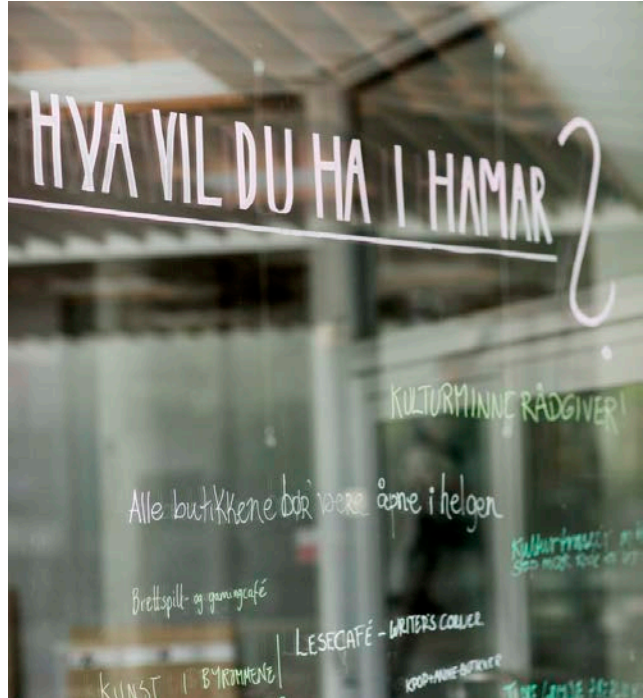 HVA VIL DU HA I HAMAR?
KULTURMINNE RÅDGIVER!
Alle butikkene bør være åpne i helgen
Brettspill- og gamingcafé
LESECAFÉ - WRITER'S CORNER
KUNST I BYROMMENE